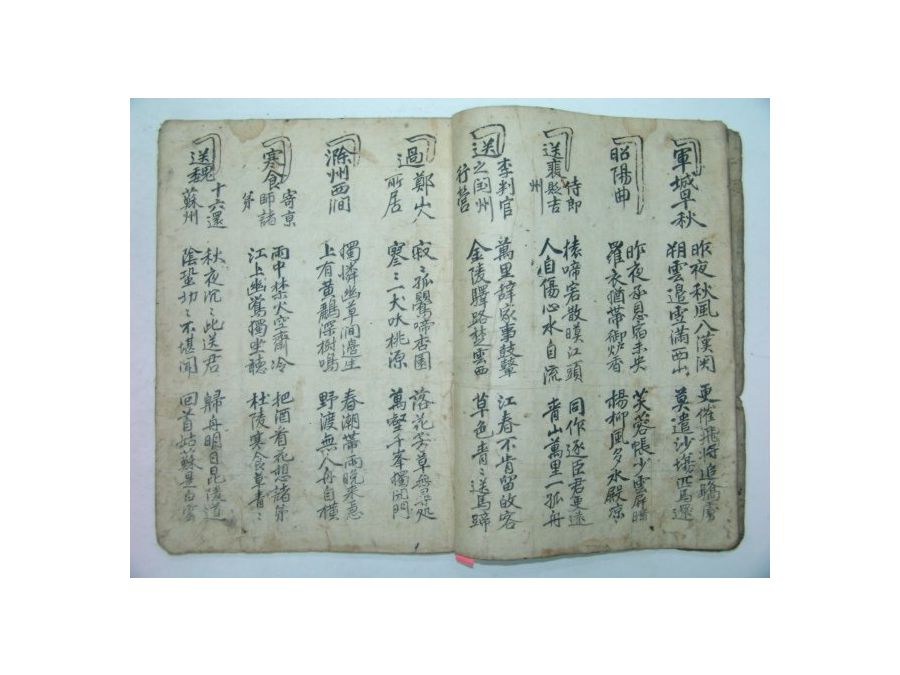 軍城早秋
昨夜秋風入漢関
朔雲邊雪滿西山
更催飛將追驕虜
莫遣沙場匹馬還
昭陽曲
昨夜承恩宿未央
羅衣猶帶御炉香
芙蓉帳小雲屏暗
楊柳風多水殿凉
送裴
侍郎
貶吉州
猿啼客散暮江頭
人自傷心水自流
同作逐臣君更遠
青山萬里一孤舟
送
李判官
之润州
行營
萬里辭家事鼓鼙
金陵驛路楚雲西
江春不肯留故客
草色青〻送馬蹄
過
鄭山人
所居
寂〻孤鸎啼杏園
寥〻一犬吠桃源
落花芳草無尋処
萬壑千峯獨閉門
滁州西澗
獨憐幽草澗邊生
上有黃鸝深樹鳴
春潮帶雨晚来急
野渡無人舟自橫
寒食
寄京
師諸
弟
雨中禁火空齋冷
江上幽鶯獨坐聽
把酒看花想諸弟
杜陵寒食草青〻
送魏
十六還
蘇州
秋夜沉〻此送君
陰蛩切〻不堪聞
歸舟明日毘陵道
回首姑蘇是白雲